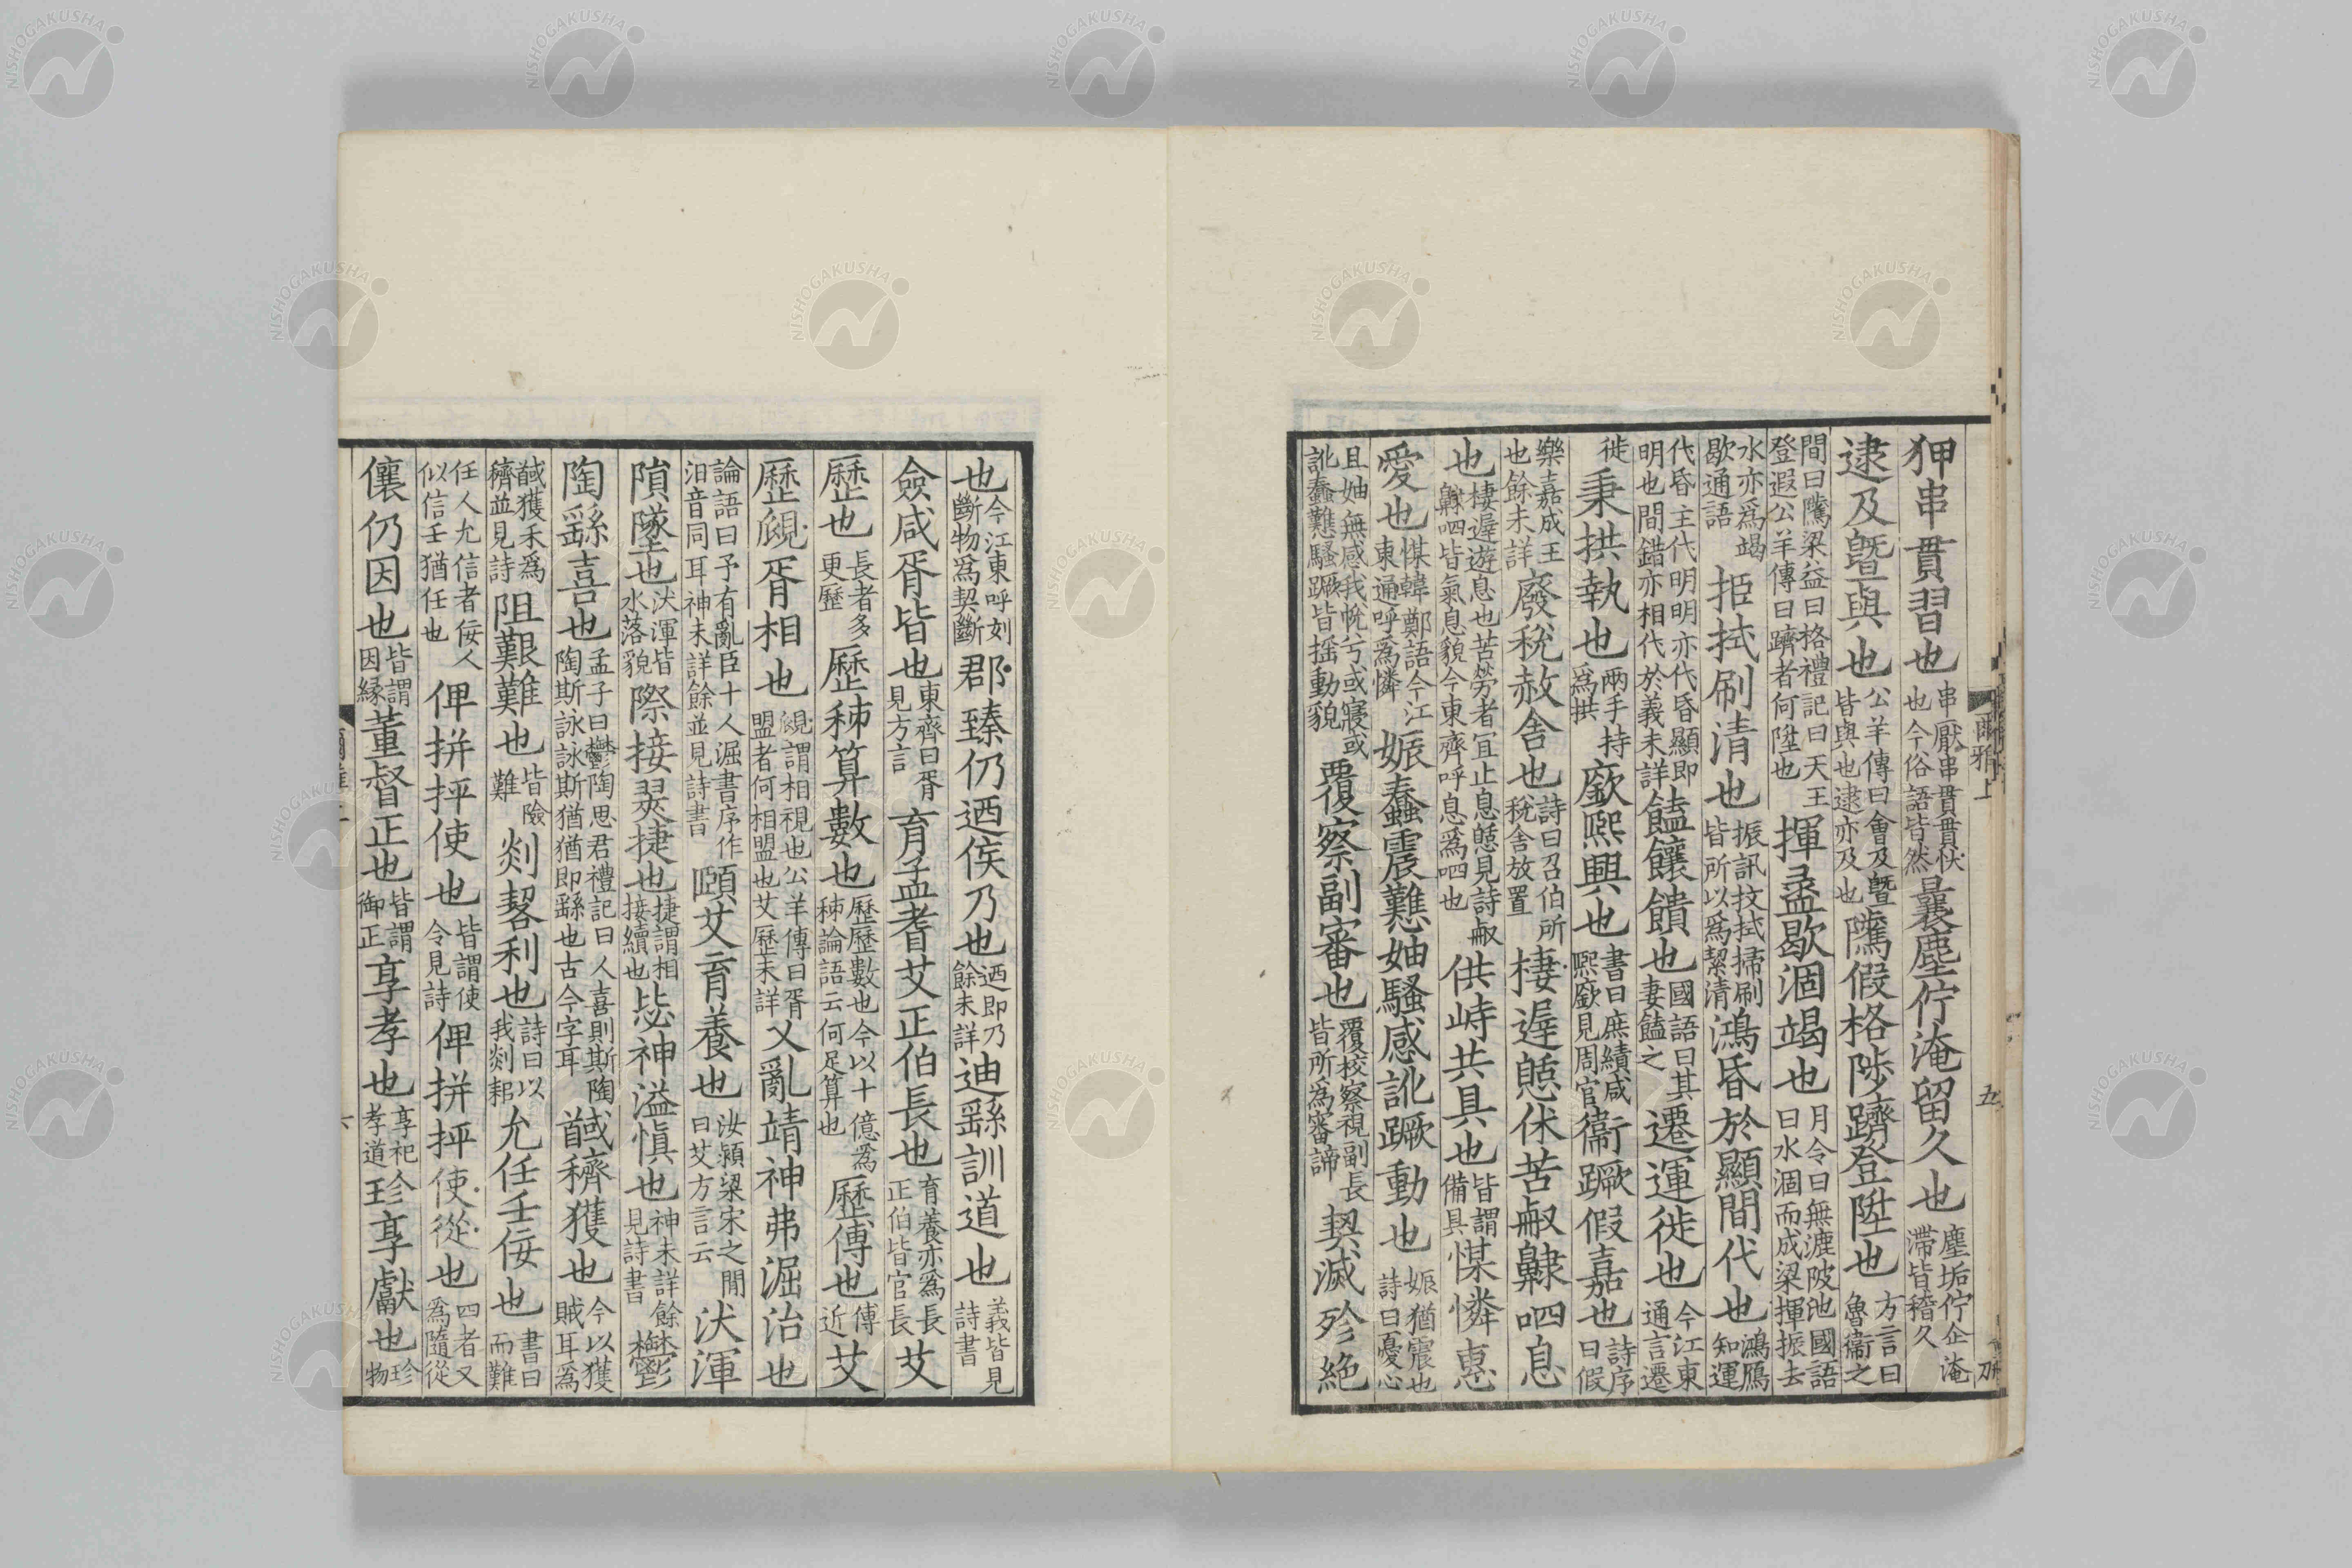 爾雅上 五
狎串貫習也串厭串貫貫忕也今俗語皆然曩塵佇淹留久也塵垢佇企淹滯皆稽久
逮及曁與也公羊傳曰會及曁皆與也逮亦及也隲假格陟躋登陞也方言曰魯衞之
間曰隲梁益曰格禮記曰天王登遐公羊傳曰躋者何陞也揮盝歇涸竭也月令曰無漉陂池國語曰水涸而成梁揮振去
水亦爲竭歇通語挋拭刷清也振訊抆拭掃刷皆所以爲絜清鴻昏於顯間代也鴻鴈知運
代昏主代明明亦代昏顯即明也間錯亦相代於義未詳饁饟饋也國語曰其妻饁之遷運徙也今江東通言遷
徙秉拱執也兩手持爲拱廞熙興也書曰庶績咸熙廞見周官衞蹶假嘉也詩序曰假
樂嘉成王也餘未詳廢稅赦舍也詩曰召伯所稅舍放置棲遲憩休苦㕞齂呬息
也棲遲遊息也苦勞者宜止息憩見詩㕞齂呬皆氣息貌今東齊呼息爲呬也供峙共具也皆謂備具㥛憐惠
愛也㥛韓鄭語今江東通呼爲憐娠蠢震戁妯騷感訛蹶動也娠猶震也詩曰憂心
且妯無感我帨兮或寢或訛蠢戁騷蹶皆搖動貌覆察副審也覆校察視副長皆所爲審諦契滅殄絕
也今江東呼刻斷物爲契斷郡臻仍迺侯乃也迺即乃餘未詳迪繇訓道也義皆見詩書
僉咸胥皆也東齊曰胥見方言育孟耆艾正伯長也育養亦爲長正伯皆官長艾
歷也長者多更歷歷秭算數也歷歷數也今以十億爲秭論語云何足算也歷傅也傅近艾
歷覛胥相也覛謂相視也公羊傳曰胥盟者何相盟也艾歷未詳乂亂靖神弗淈治也
論語曰予有亂臣十人淈書序作汩音同耳神未詳餘並見詩書頤艾育養也汝潁梁宋之閒曰艾方言云汱渾
隕墜也汱渾皆水落貌際接翜捷也捷謂相接續也毖神溢愼也神未詳餘見詩書鬱
陶繇喜也孟子曰鬱陶思君禮記曰人喜則斯陶陶斯詠詠斯猶猶即繇也古今字耳馘穧獲也今以獲賊耳爲
馘獲禾爲穧並見詩阻艱難也皆險難剡䂮利也詩曰以我剡耜允任壬佞也書曰而難
任人允信者佞人似信壬猶任也俾拼抨使也皆謂使令見詩俾拼抨使從也四者又爲隨從
儴仍因也皆謂因緣董督正也皆謂御正享孝也享祀孝道珍享獻也珍物
NISHOGAKUSHA